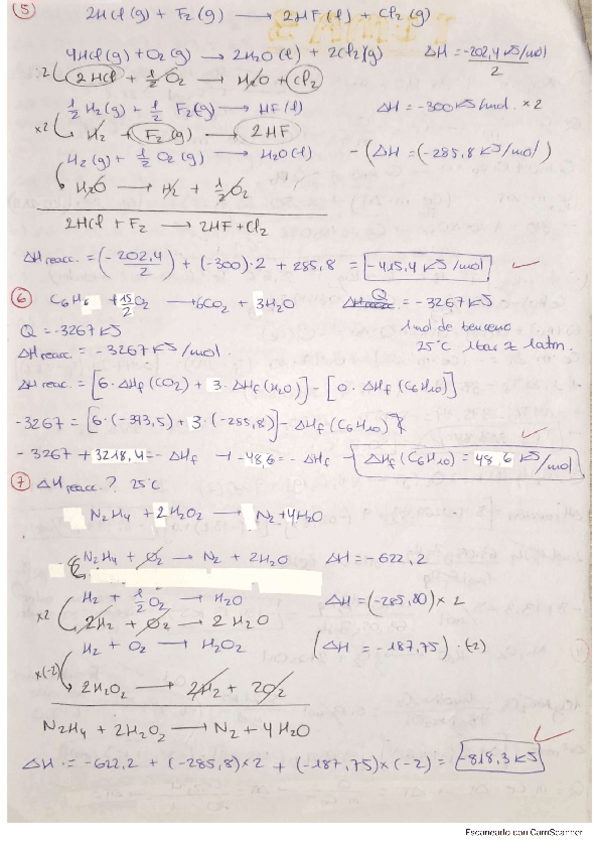 5 2HCl(g) + F₂(g) → 2HF(l) + Cl₂(g)
4HCl(g) + O₂(g) → 2H₂O(l) + 2Cl₂(g) ΔH = -202,4 kJ/mol / 2
:2 2HCl + 1/2 O₂ → H₂O + Cl₂
1/2 H₂(g) + 1/2 F₂(g) → HF(l) ΔH = -300 kJ/mol. ×2
×2 H₂ + F₂(g) → 2HF
H₂(g) + 1/2 O₂(g) → H₂O(l) - (ΔH = (-285,8 kJ/mol)
H₂O → H₂ + 1/2 O₂
2HCl + F₂ → 2HF + Cl₂
ΔH reacc. = (-202,4/2) + (-300)·2 + 285,8 = -415,4 kJ/mol
6 C₆H₆ + 15/2 O₂ → 6CO₂ + 3H₂O Q = -3267 kJ
Q = -3267 kJ 1mol de benceno
ΔH reacc. = -3267 kJ/mol. 25°C 1bar ≈ 1atm.
ΔH reacc. = [6·ΔHf(CO₂) + 3·ΔHf(H₂O)] - [0·ΔHf(C₆H₁₀)]
-3267 = [6·(-393,5) + 3·(-285,8)] - ΔHf(C₆H₁₀)
-3267 + 3218,4 = -ΔHf → -48,6 = -ΔHf → ΔHf(C₆H₁₀) = 48,6 kJ/mol
7 ΔH reacc.? 25°C
N₂H₄ + 2H₂O₂ → N₂ + 4H₂O
N₂H₄ + O₂ → N₂ + 2H₂O ΔH = -622,2
H₂ + 1/2 O₂ → H₂O ΔH = (-285,80) × 2
×2 2H₂ + O₂ → 2H₂O
H₂ + O₂ → H₂O₂ (ΔH = -187,75)·(-2)
×(-2) 2H₂O₂ → 2H₂ + 2O₂
N₂H₄ + 2H₂O₂ → N₂ + 4H₂O
ΔH = -622,2 + (-285,8)×2 + (-187,75)×(-2) = -818,3 kJ
Escaneado con CamScanner